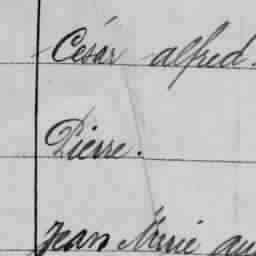 César Alfred.
Pierre.
Jean Marie